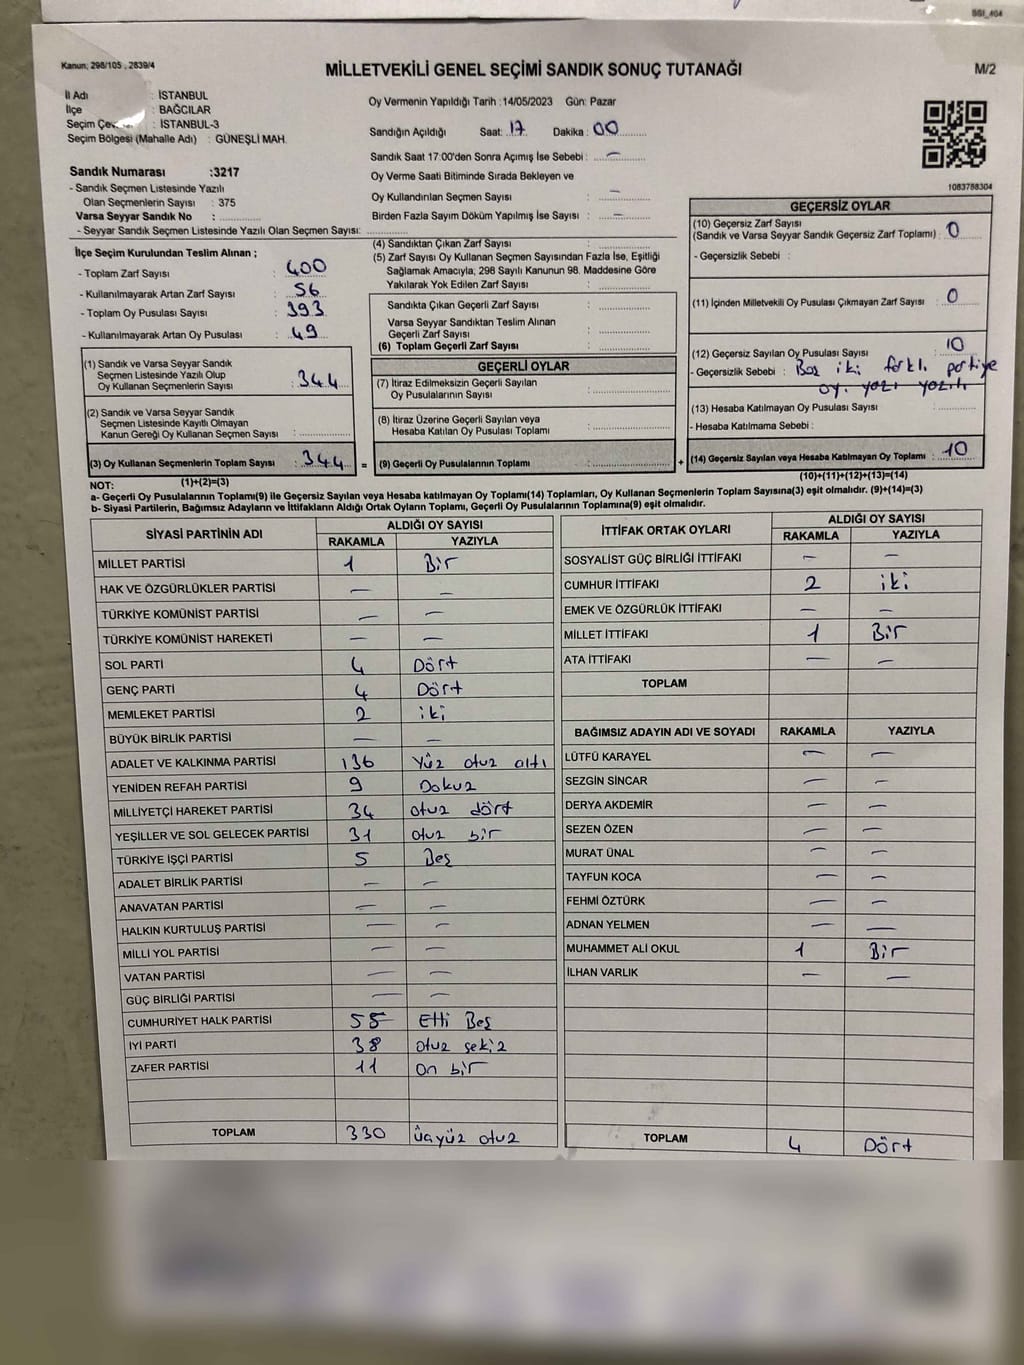 SGI_404
Kanun; 298/105 , 2839/4
MİLLETVEKİLİ GENEL SEÇİMİ SANDIK SONUÇ TUTANAĞI
M/2
İl Adı : İSTANBUL
İlçe : BAĞCILAR
Seçim Çev : İSTANBUL-3
Seçim Bölgesi (Mahalle Adı) : GÜNEŞLİ MAH.
Oy Vermenin Yapıldığı Tarih :14/05/2023 Gün: Pazar
Sandığın Açıldığı Saat: 17 Dakika : 00
Sandık Saat 17:00'den Sonra Açımış İse Sebebi : —
Oy Verme Saati Bitiminde Sırada Bekleyen ve
Oy Kullandırılan Seçmen Sayısı : —
Birden Fazla Sayım Döküm Yapılmış İse Sayısı : —
Sandık Numarası :3217
- Sandık Seçmen Listesinde Yazılı
Olan Seçmenlerin Sayısı : 375
Varsa Seyyar Sandık No :
- Seyyar Sandık Seçmen Listesinde Yazılı Olan Seçmen Sayısı:
1083788304
İlçe Seçim Kurulundan Teslim Alınan ;
- Toplam Zarf Sayısı : 400
- Kullanılmayarak Artan Zarf Sayısı : 56
- Toplam Oy Pusulası Sayısı : 393
- Kullanılmayarak Artan Oy Pusulası : 49
(1) Sandık ve Varsa Seyyar Sandık
Seçmen Listesinde Yazılı Olup
Oy Kullanan Seçmenlerin Sayısı : 344
(2) Sandık ve Varsa Seyyar Sandık
Seçmen Listesinde Kayıtlı Olmayan
Kanun Gereği Oy Kullanan Seçmen Sayısı :
(3) Oy Kullanan Seçmenlerin Toplam Sayısı : 344 =
(1)+(2)=(3)
(4) Sandıktan Çıkan Zarf Sayısı :
(5) Zarf Sayısı Oy Kullanan Seçmen Sayısından Fazla İse, Eşitliği
Sağlamak Amacıyla, 298 Sayılı Kanunun 98. Maddesine Göre
Yakılarak Yok Edilen Zarf Sayısı :
Sandıkta Çıkan Geçerli Zarf Sayısı :
Varsa Seyyar Sandıktan Teslim Alınan
Geçerli Zarf Sayısı :
(6) Toplam Geçerli Zarf Sayısı :
GEÇERLİ OYLAR
(7) İtiraz Edilmeksizin Geçerli Sayılan
Oy Pusulalarının Sayısı :
(8) İtiraz Üzerine Geçerli Sayılan veya
Hesaba Katılan Oy Pusulası Toplamı :
(9) Geçerli Oy Pusulalarının Toplamı : +
GEÇERSİZ OYLAR
(10) Geçersiz Zarf Sayısı
(Sandık ve Varsa Seyyar Sandık Geçersiz Zarf Toplamı) : 0
- Geçersizlik Sebebi :
(11) İçinden Milletvekili Oy Pusulası Çıkmayan Zarf Sayısı : 0
(12) Geçersiz Sayılan Oy Pusulası Sayısı : 10
- Geçersizlik Sebebi : Boş iki farklı partiye
oy. yazı yazılı
(13) Hesaba Katılmayan Oy Pusulası Sayısı :
- Hesaba Katılmama Sebebi :
(14) Geçersiz Sayılan veya Hesaba Katılmayan Oy Toplamı : 10
(10)+(11)+(12)+(13)=(14)
NOT:
a- Geçerli Oy Pusulalarının Toplamı(9) ile Geçersiz Sayılan veya Hesaba katılmayan Oy Toplamı(14) Toplamları, Oy Kullanan Seçmenlerin Toplam Sayısına(3) eşit olmalıdır. (9)+(14)=(3)
b- Siyasi Partilerin, Bağımsız Adayların ve İttifakların Aldığı Ortak Oyların Toplamı, Geçerli Oy Pusulalarının Toplamına(9) eşit olmalıdır.
SİYASİ PARTİNİN ADI ALDIĞI OY SAYISI
RAKAMLA YAZIYLA
MİLLET PARTİSİ 1 Bir
HAK VE ÖZGÜRLÜKLER PARTİSİ — —
TÜRKİYE KOMÜNİST PARTİSİ — —
TÜRKİYE KOMÜNİST HAREKETİ — —
SOL PARTİ 4 Dört
GENÇ PARTİ 4 Dört
MEMLEKET PARTİSİ 2 iki
BÜYÜK BİRLİK PARTİSİ — —
ADALET VE KALKINMA PARTİSİ 136 Yüz otuz altı
YENİDEN REFAH PARTİSİ 9 Dokuz
MİLLİYETÇİ HAREKET PARTİSİ 34 otuz dört
YEŞİLLER VE SOL GELECEK PARTİSİ 31 otuz bir
TÜRKİYE İŞÇİ PARTİSİ 5 Beş
ADALET BİRLİK PARTİSİ — —
ANAVATAN PARTİSİ — —
HALKIN KURTULUŞ PARTİSİ — —
MİLLİ YOL PARTİSİ — —
VATAN PARTİSİ — —
GÜÇ BİRLİĞİ PARTİSİ — —
CUMHURİYET HALK PARTİSİ 55 Elli Beş
İYİ PARTİ 38 otuz sekiz
ZAFER PARTİSİ 11 on bir
TOPLAM 330 üçyüz otuz
İTTİFAK ORTAK OYLARI ALDIĞI OY SAYISI
RAKAMLA YAZIYLA
SOSYALİST GÜÇ BİRLİĞİ İTTİFAKI — —
CUMHUR İTTİFAKI 2 iki
EMEK VE ÖZGÜRLÜK İTTİFAKI — —
MİLLET İTTİFAKI 1 Bir
ATA İTTİFAKI — —
TOPLAM
BAĞIMSIZ ADAYIN ADI VE SOYADI RAKAMLA YAZIYLA
LÜTFÜ KARAYEL — —
SEZGİN SİNCAR — —
DERYA AKDEMİR — —
SEZEN ÖZEN — —
MURAT ÜNAL — —
TAYFUN KOCA — —
FEHMİ ÖZTÜRK — —
ADNAN YELMEN — —
MUHAMMET ALİ OKUL 1 Bir
İLHAN VARLIK — —
TOPLAM 4 Dört